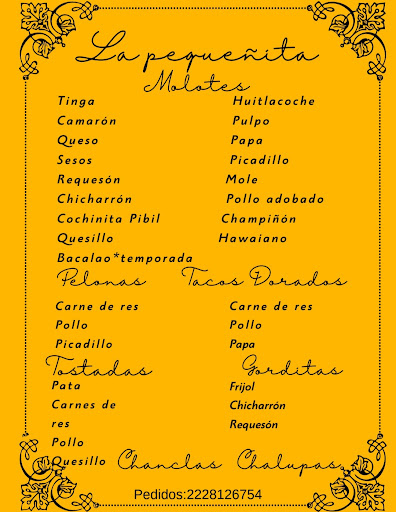 La pequeñita
Molotes
Tinga Huitlacoche
Camarón Pulpo
Queso Papa
Sesos Picadillo
Requesón Mole
Chicharrón Pollo adobado
Cochinita Pibil Champiñón
Quesillo Hawaiano
Bacalao*temporada
Pelonas Tacos Dorados
Carne de res Carne de res
Pollo Pollo
Picadillo Papa
Tostadas Gorditas
Pata Frijol
Carnes de Chicharrón
res Requesón
Pollo
Quesillo Chanclas Chalupas
Pedidos:2228126754